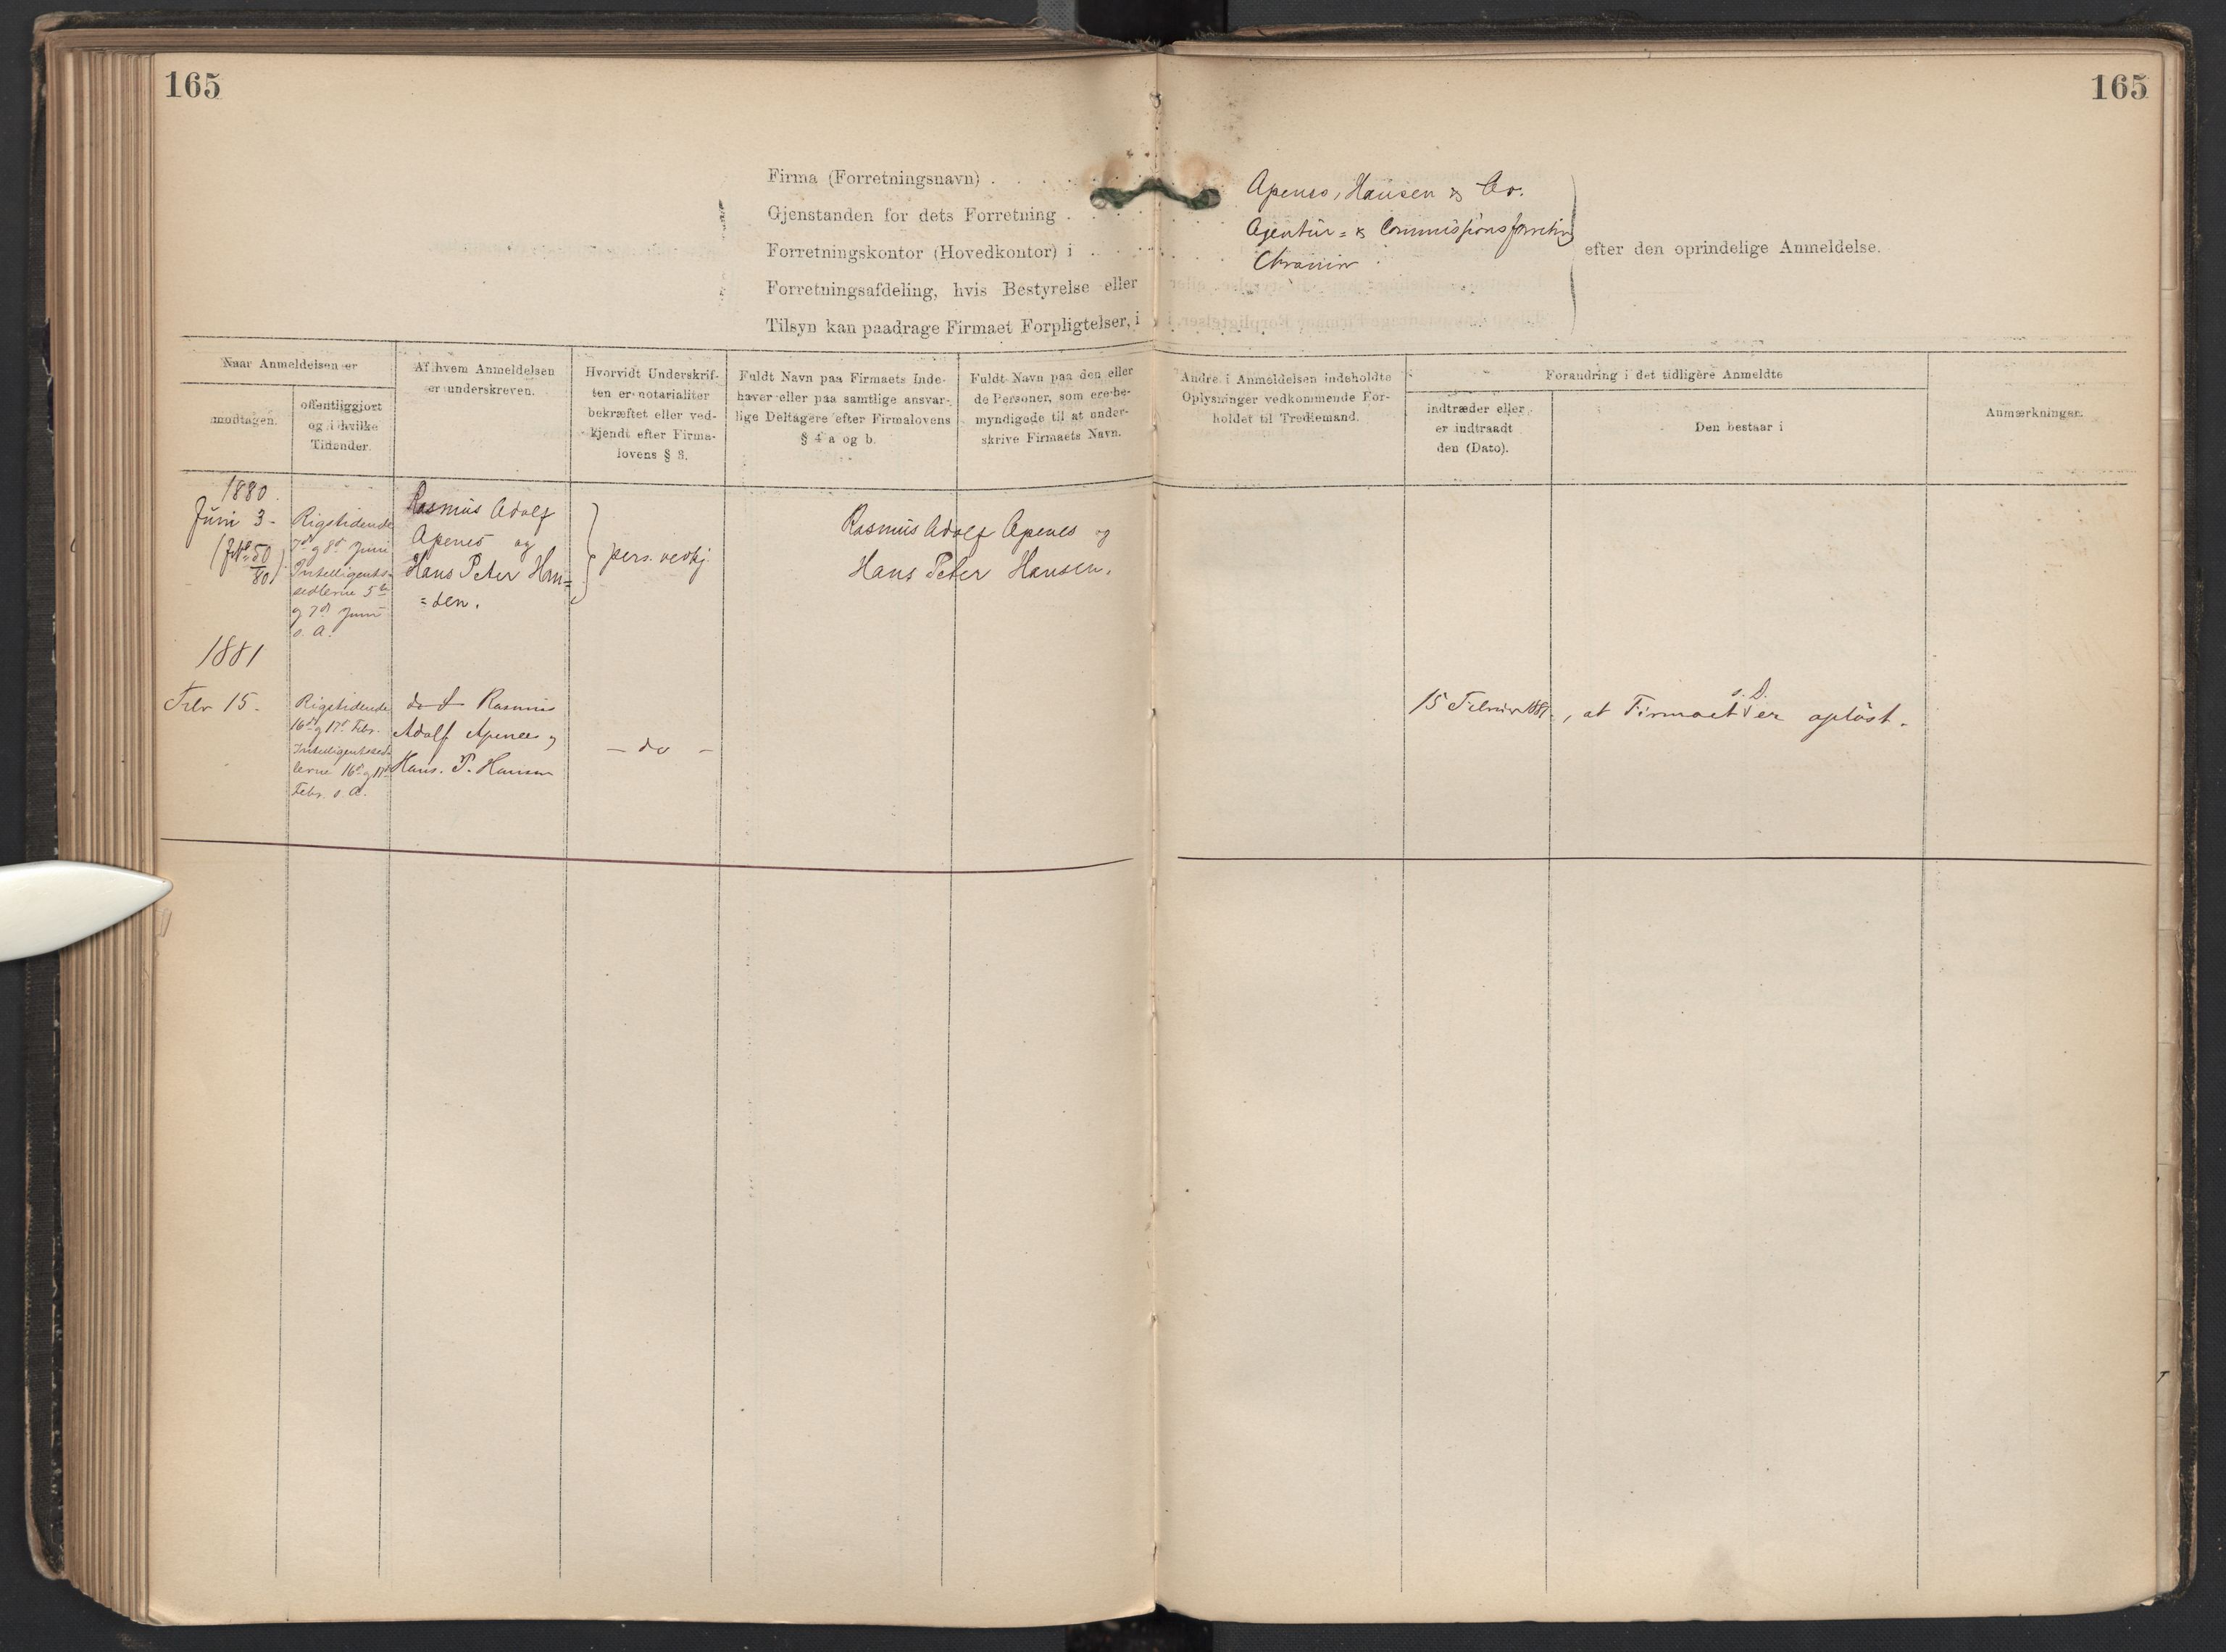 165
165
Firma (Forretningsnavn) . . . .
Apenes, Hansen & Co.
Gjenstanden for dets Forretning . .
Agentur= & Commissionsforretning
Forretningskontor (Hovedkontor) i . . . .
Chrania
efter den oprindelige Anmeldelse.
Forretningsafdeling, hvis Bestyrelse eller
Tilsyn kan paadrage Firmaet Forpligtelser, i
Naar Anmeldelsen er
modtagen.
offentliggjort
og i hvilke
Tidender.
Af hvem Anmeldelsen
er underskreven.
Hvorvidt Underskrif-
ten er notarialiter
bekræftet eller ved-
kjendt efter Firma-
lovens § 3.
Fuldt Navn paa Firmaets Inde-
haver eller paa samtlige ansvar-
lige Deltagere efter Firmalovens
§ 4 a og b.
Fuldt Navn paa den eller
de Personer, som ere be-
myndigede til at under-
skrive Firmaets Navn.
Andre i Anmeldelsen indeholdte
Oplysninger vedkommende For-
holdet til Trediemand.
Forandring i det tidligere Anmeldte
indtræder eller
er indtraadt
den (Dato).
Den bestaar i
Anmærkninger.
1880.
Juni 3.
50
80
Rigstidende
7de og 8de Juni
Intelligents-
sedlerne 5te
og 7de Juni
s. A.
Rasmus Adolf
Apenes og
Hans Peter Han=
=sen.
pers. vedkj.
Rasmus Adolf Apenes og
Hans Peter Hansen.
1881
Febr 15.
Rigstidende
16de og 17de Febr.
Intelligentssed-
lerne 16de og 17de
Febr. s. A.
Rasmus
Adolf Apenes og
Hans. P. Hansen
- do -
15 Februar 1881.
, at Firmaet s. D. er opløst.